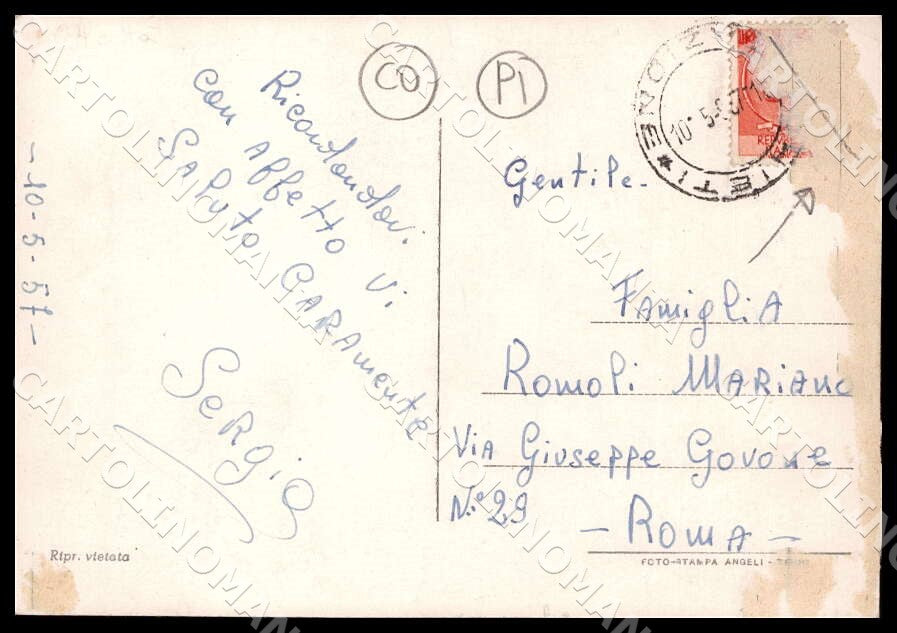 CO
PI
Ricordandovi.
con affetto vi
Saluto CARAmente
Sergio
- 10-5-57 -
Gentile.
FAmigliA
Romoli MARIANO
ViA Giuseppe Govone
N.º 29
- Roma -
Ripr. vietata
FOTO-STAMPA ANGELI -
CARTOLINOMANIA